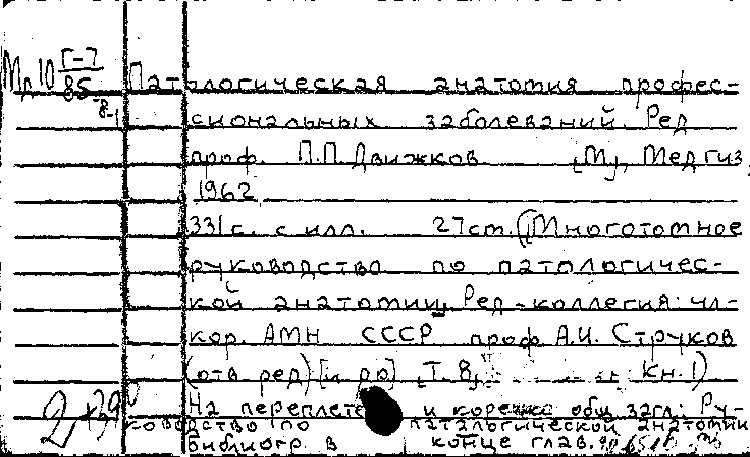 Мд10 Г-7
85
8-1
Патологическая анатомия профес-
сиональных заболеваний. Ред
проф. П.П. Движков [М], Медгиз,
1962
331 с. с илл. 27 см. (Многотомное
руководство по патологичес-
кой анатомии. Ред-коллегия: чл-
кор. АМН СССР проф А.И. Струков
(отв ред) [и др] Т. 8, Кн. 1)
2
На переплете и корешке общ. загл.: Ру-
ководство по патальгической анатомии
Библиогр в конце глав.